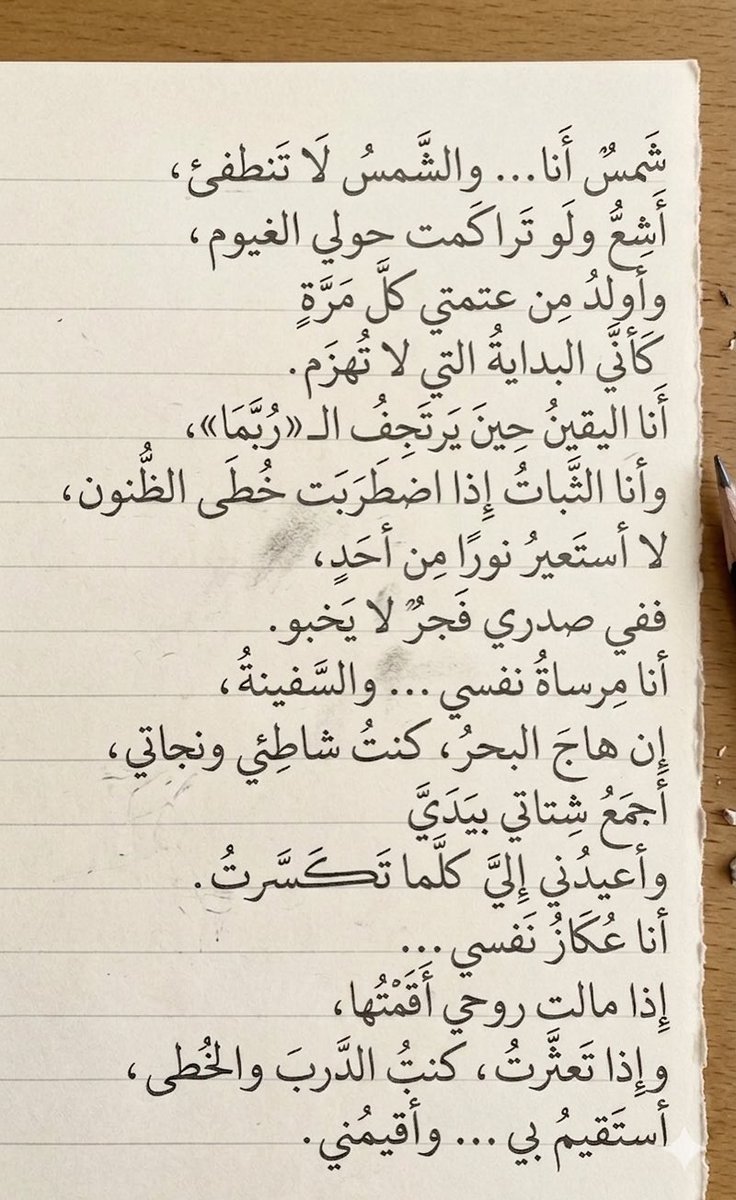 شَمسٌ أَنا... والشَّمسُ لَا تَنطفئ،
أَشِعُّ ولَو تَراكَمت حولي الغيوم،
وأولدُ مِن عتمتي كلَّ مَرَّةٍ
كَأنَّي البدايةُ التي لا تُهزَم.
أَنا اليقينُ حِينَ يَرتَجِفُ الـ «رُبَّمَا»،
وأنا الثَّباتُ إِذا اضطَرَبَت خُطَى الظُّنون،
لا أستَعيرُ نورًا مِن أحَدٍ،
ففي صدري فَجرٌ لا يَخبو.
أنا مِرساةُ نفسي... والسَّفينةُ،
إِن هاجَ البحرُ، كنتُ شاطِئي ونجاتي،
أَجمَعُ شِتاتي بيَدَيَّ
وأعيدُني إِليَّ كلَّما تَكَسَّرتُ.
أنا عُكَازُ نَفسي...
إِذا مالت روحي أَقَمْتُها،
وإِذا تَعثَّرتُ، كنتُ الدَّربَ والخُطى،
أستَقيمُ بي... وأقيمُني.